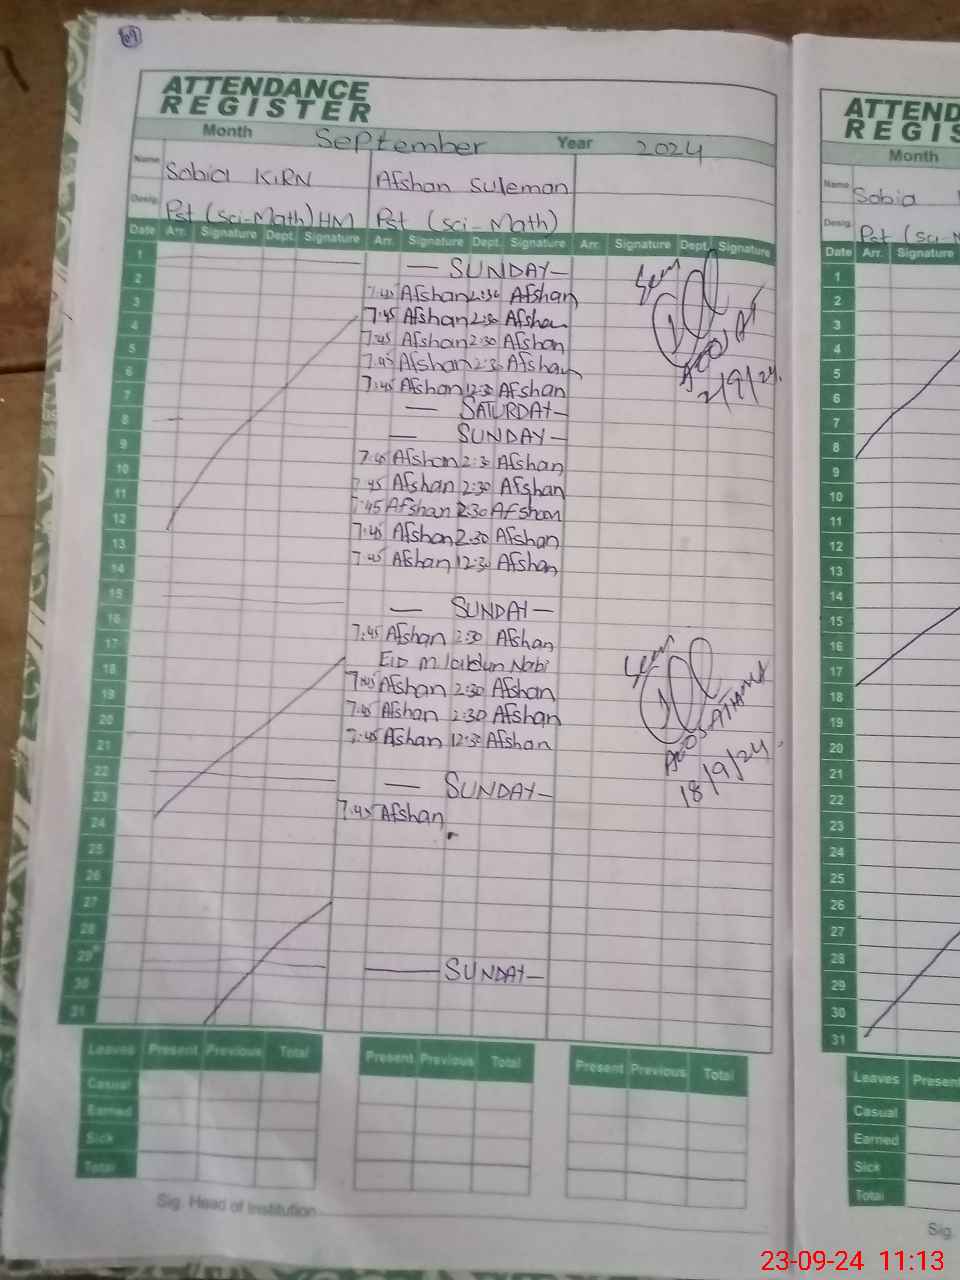 ATTENDANCE
REGISTER
Month September Year 2024
Name Sobia KIRN Afshan Suleman
Desig. Pst (sci-Math) HM Pst (sci-Math)
Date Arr. Signature Dept. Signature Arr. Signature Dept. Signature Arr. Signature Dept. Signature
1 — SUNDAY —
2 7:45 Afshan 2:30 Afshan
3 7:45 Afshan 2:30 Afshan
4 7:45 Afshan 2:30 Afshan
5 7:45 Afshan 2:30 Afshan
6 7:45 Afshan 12:30 Afshan
7 — SATURDAY —
8 — SUNDAY —
9 7:45 Afshan 2:30 Afshan
10 7:45 Afshan 2:30 Afshan
11 7:45 Afshan 2:30 Afshan
12 7:45 Afshan 2:30 Afshan
13 7:45 Afshan 12:30 Afshan
14
15 — SUNDAY —
16 7:45 Afshan 2:30 Afshan
17 Eid Miladun Nabi
18 7:45 Afshan 2:30 Afshan
19 7:45 Afshan 2:30 Afshan
20 7:45 Afshan 12:30 Afshan
21
22 — SUNDAY —
23 7:45 Afshan
24
25
26
27
28
29 — SUNDAY —
30
31
Seen
2/9/24.
Seen
18/9/24.
Leaves Present Previous Total Present Previous Total Present Previous Total
Casual
Earned
Sick
Total
Sig. Head of Institution
ATTEND
REGIS
Month
Name Sobia
Desig. Pst (sci-M
Date Arr. Signature
1
2
3
4
5
6
7
8
9
10
11
12
13
14
15
16
17
18
19
20
21
22
23
24
25
26
27
28
29
30
31
Leaves Present
Casual
Earned
Sick
Total
Sig.
23-09-24 11:13